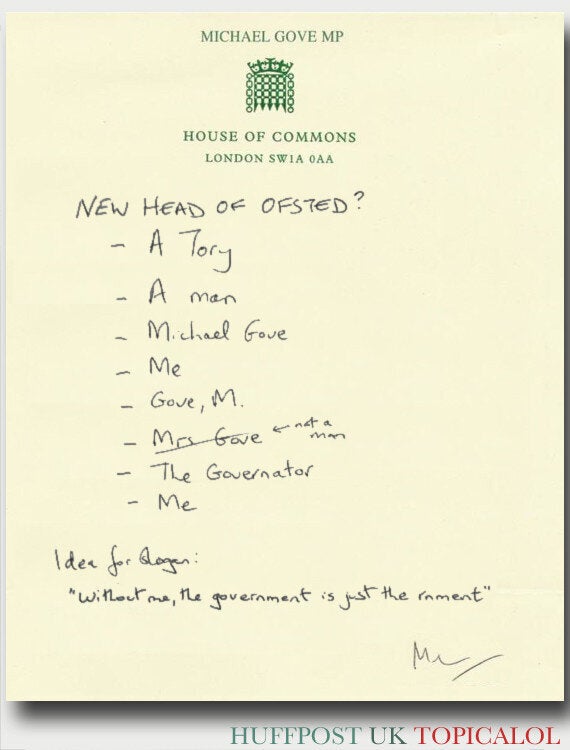 MICHAEL GOVE MP
HOUSE OF COMMONS
LONDON SW1A 0AA
NEW HEAD OF OFSTED?
- A Tory
- A man
- Michael Gove
- Me
- Gove, M.
- Mrs Gove ← not a man
- The Governator
- Me
Idea for slogan:
"Without me, the government is just the rnment"
HUFFPOST UK TOPICALOL